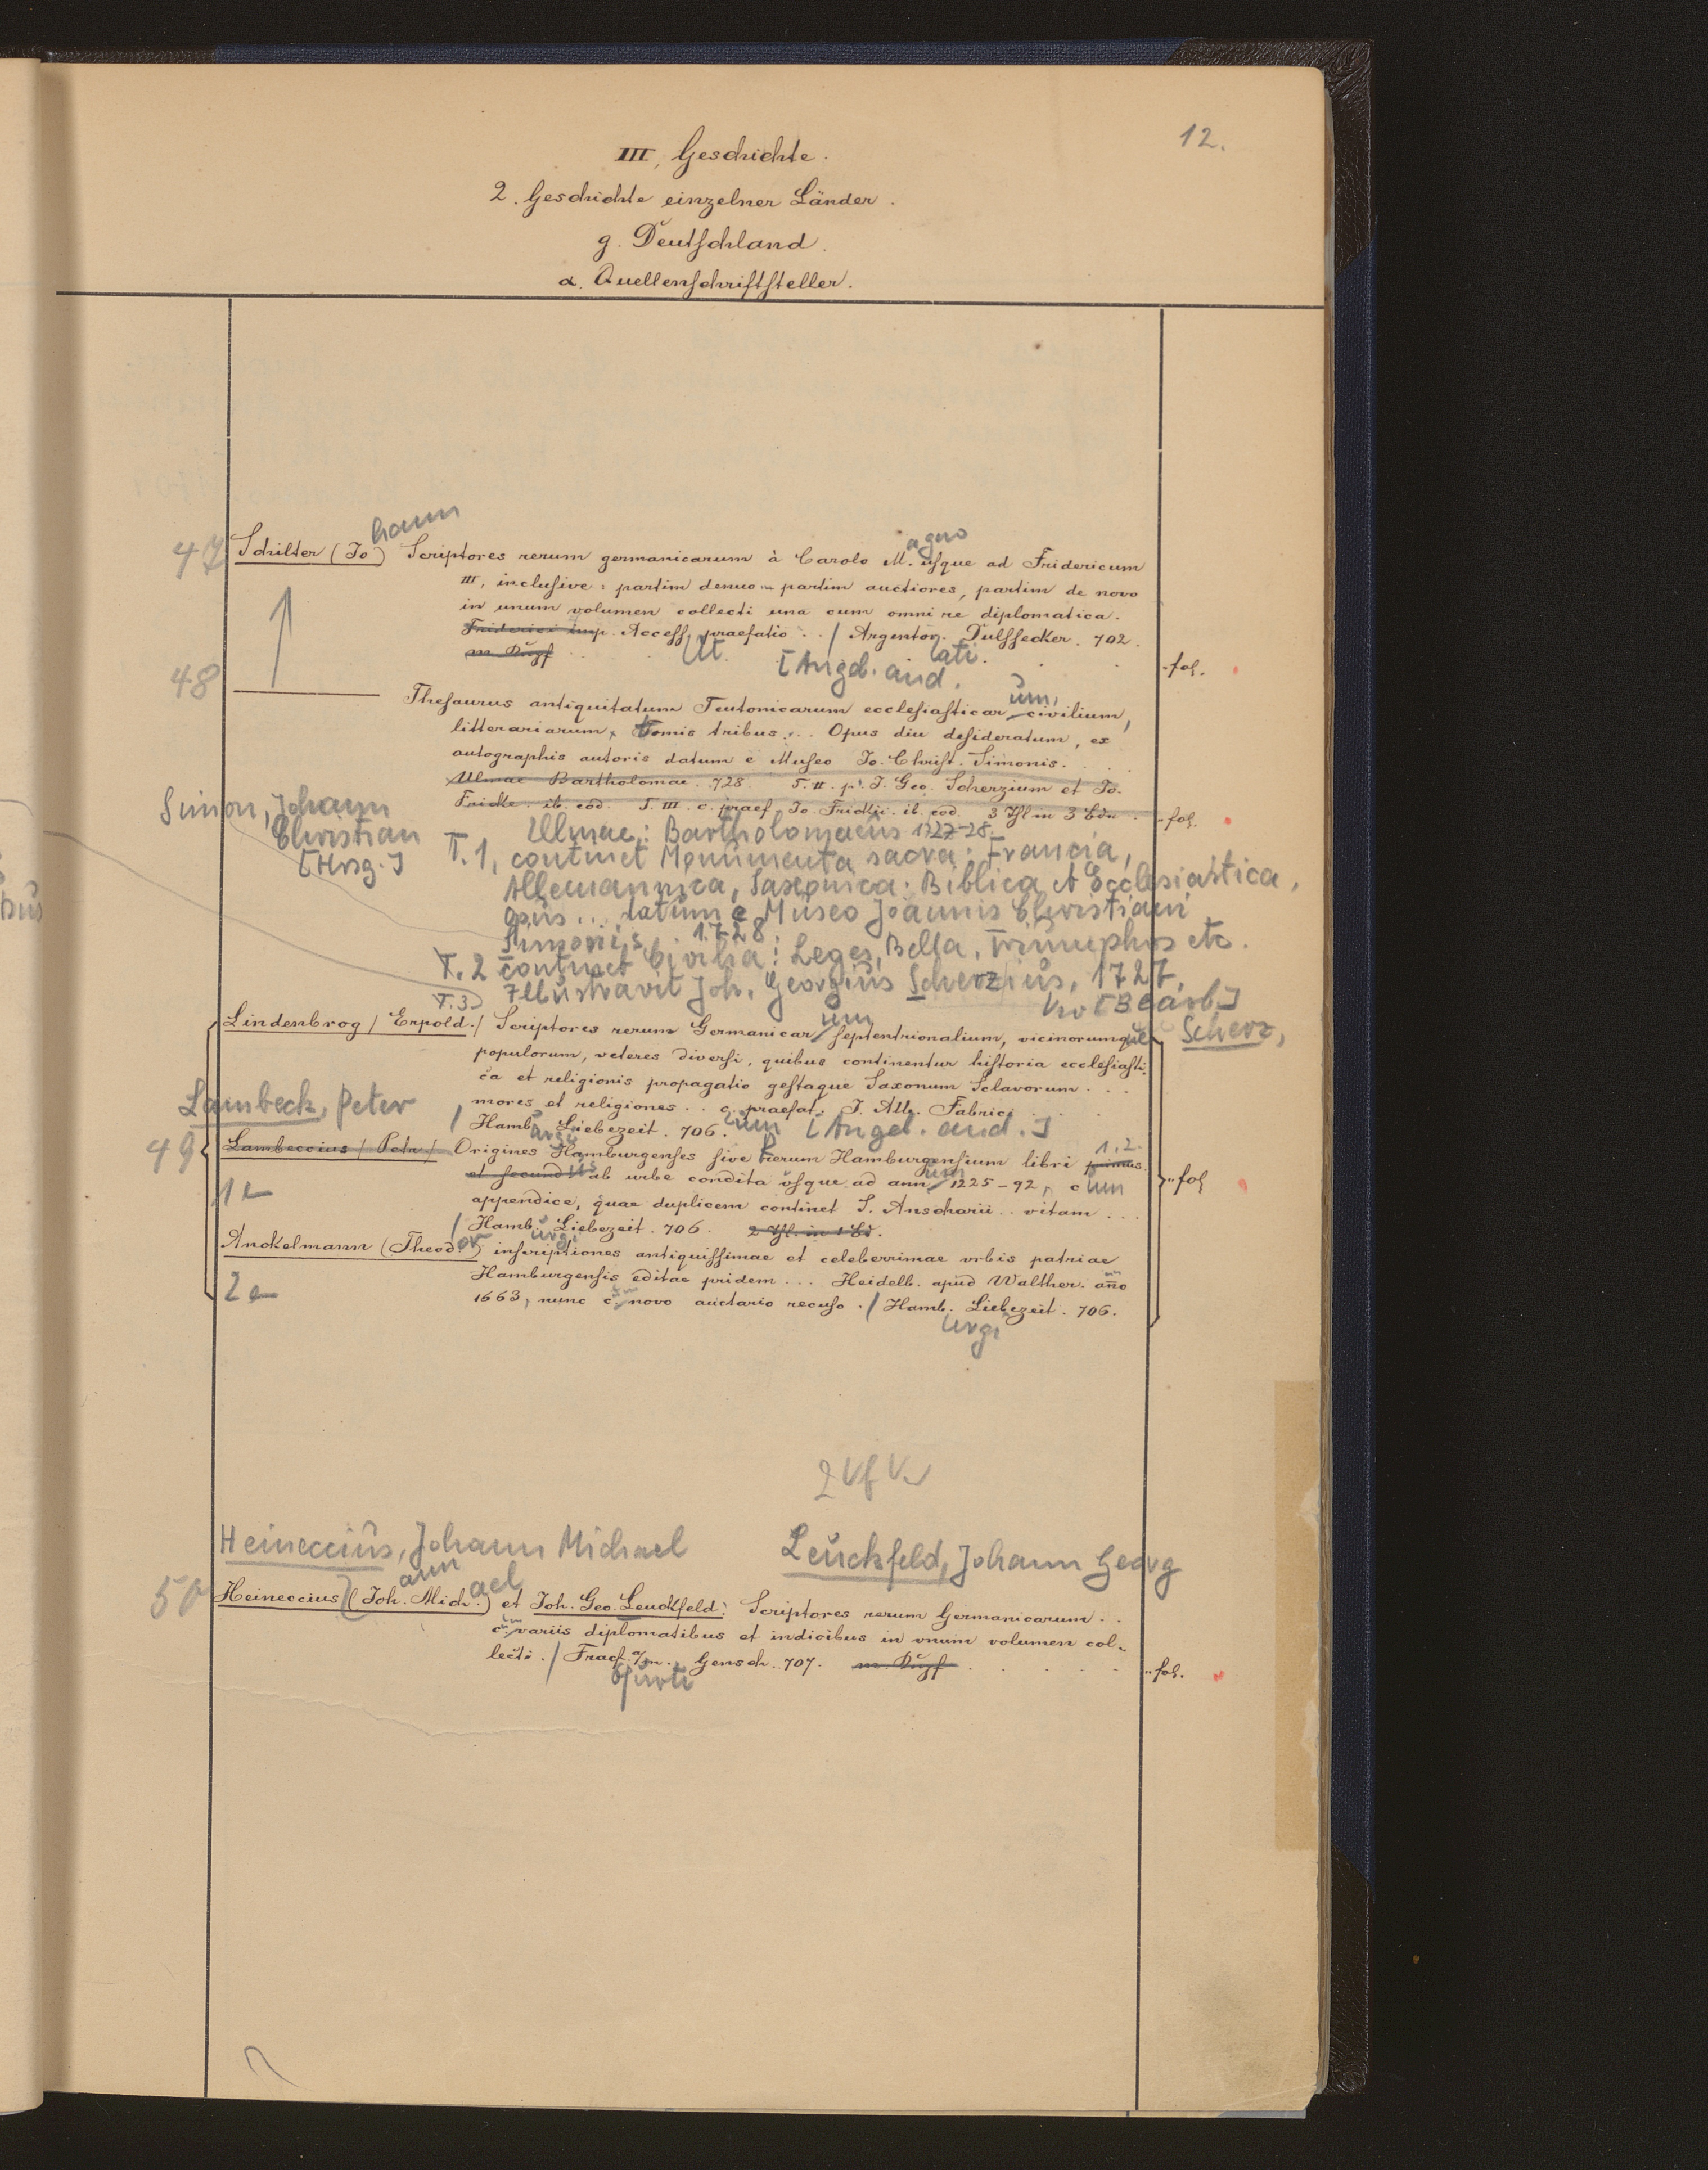 12.
III, Geschichte.
2. Geschichte einzelner Länder.
g. Deutschland.
α. Quellenschriftsteller.
47 Schilter (Jo)hann Scriptores rerum germanicarum à Carolo M.agno usque ad Fridericum
III, inclusive: partim denuo partim auctiores, partim de novo
in unum volumen collecti una cum omni re diplomatica.
Friderici imp. Access. praefatio.. / Argentor. Dulssecker. 702.
m. Kupf
Ut. [Angeb. and. ati.
fol.
48
Thesaurus antiquitatum Teutonicarum ecclesiasticarum, civilium,
litterariarum, tomis tribus... Opus diu desideratum, ex
autographis autoris datum e Museo Jo. Christ. Simonis.
Ulmae Bartholomae. 728. T. II. p. J. Geo. Scherzium et Jo.
Fricke. ib. eod. T. III. c. praef. Jo. Frickii. ib. eod. 3 Thl in 3 Bdn. fol.
Simon, Johann
Christian
[Hrsg.]
Ulmae: Bartholomaeus 1727-28.
T. 1, continet Monumenta sacra: Francia,
Allemannica, Saxonica: Biblica et Ecclesiastica,
opus... datum e Museo Joannis Christiani
Simonis. 1728
T. 2 continet Civilia: Leges, Bella, Triumphos etc.
Illustravit Joh. Georgius Scherzius, 1727.
T. 3
[Bearb.]
Scherz,
Lindenbrog / Erpold. / Scriptores rerum Germanicarum septentrionalium, vicinorumque
populorum, veteres diversi, quibus continentur historia ecclesiasti-
ca et religionis propagatio gestaque Saxonum Sclavorum...
mores et religiones.. c. praefat. J. Alb. Fabrici
/ Hamburgi Liebezeit. 706. um [Angeb. and.]
Lambeck, Peter
49 Lambeccius / Petr / Origines Hamburgenses sive Rerum Hamburgensium libri primus 1.2.
et secundus ab urbe condita usque ad annum 1225-92, cum
1e
appendice, quae duplicem continet S. Anscharii.. vitam...
/ Hamburgi Liebezeit. 706. 2 Thl. in 1 Bd.
fol
Anckelmann (Theodor) inscriptiones antiquissimae et celeberrimae vrbis patriae
2e
Hamburgensis editae pridem... Heidelb. apud Walther. año
1663, nunc cum novo auctario recuso. / Hamb. Liebezeit. 706.
urgi
Heineccius, Johann Michael Leuckfeld, Johann Georg
50 Heineccius (Joh.ann Mich.ael) et Joh. Geo. Leuckfeld: Scriptores rerum Germanicarum..
cum variis diplomatibus et indicibus in vnum volumen col-
lecti. / Fracf. a/m. Gensch. 707. m. Kupf
fol.